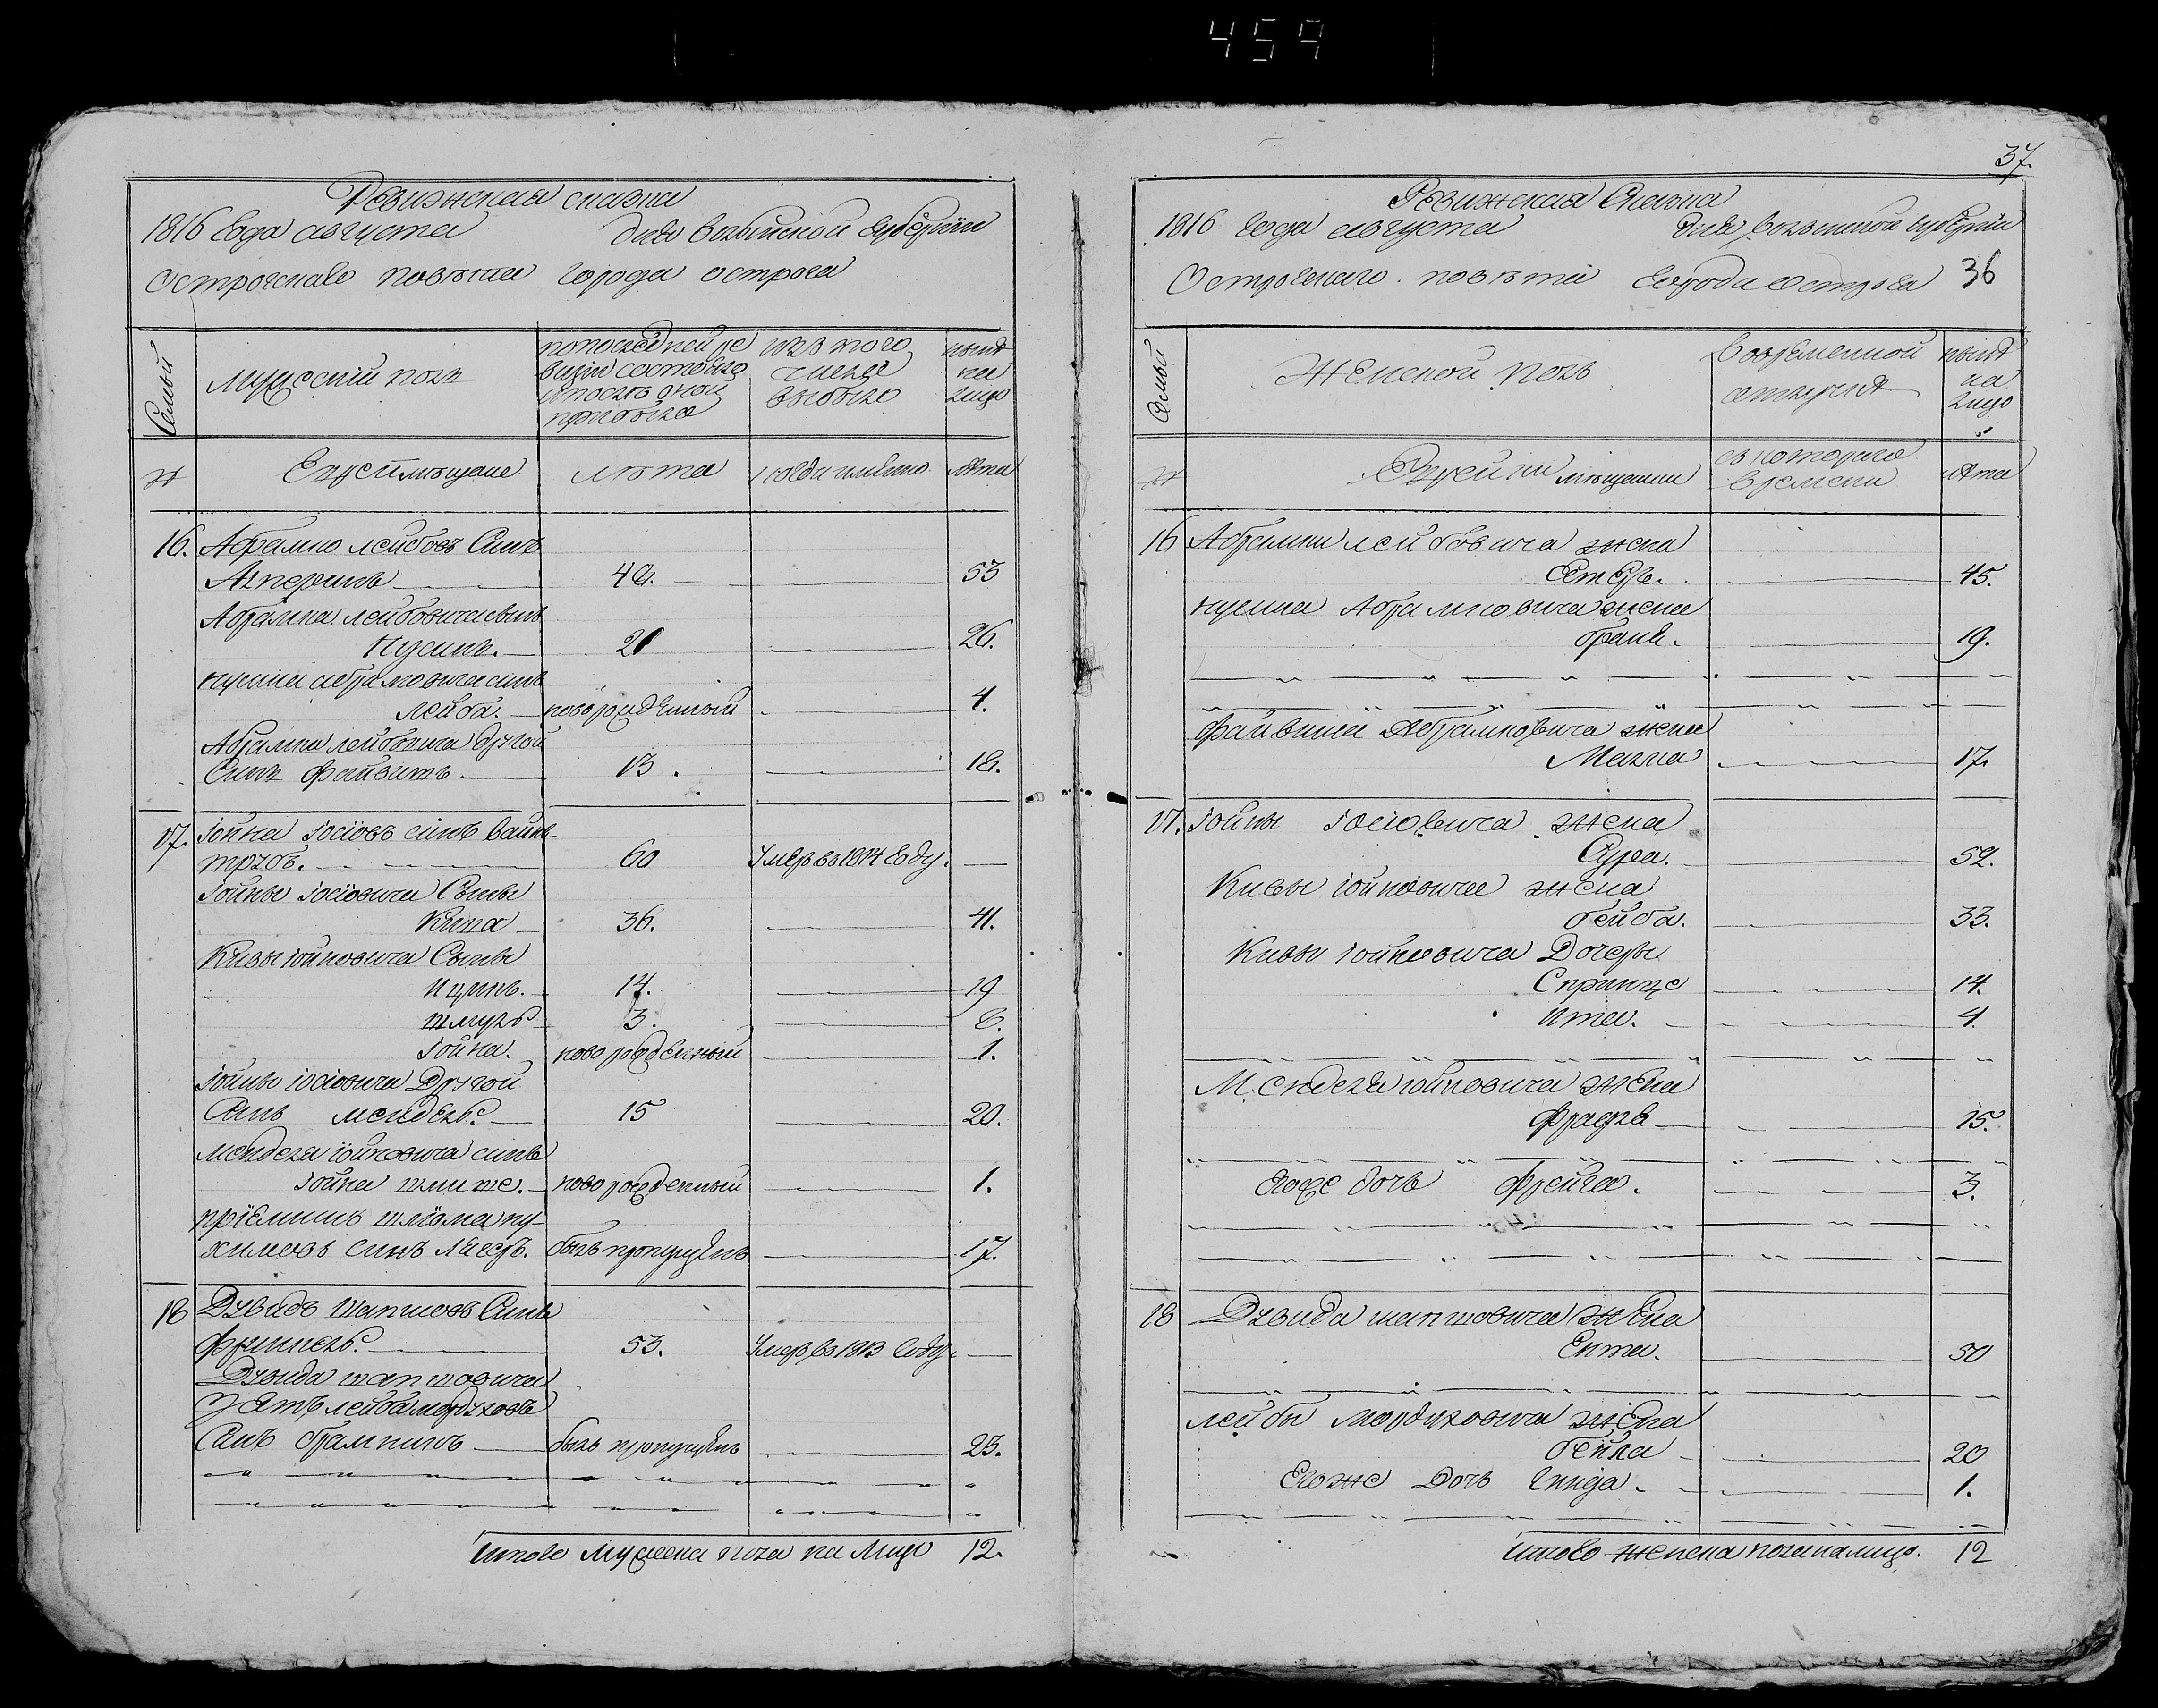 459
Ревизская сказка
1816 года августа дня волынской губернии
Острогскаго повета города острога
Семьи
мужеский полъ
по последней ре
визіи состояло
и после оной
прибыло
изъ того
числа
выбыло
ныне
на
лицо
№
Евреи мещане
лета
когда имянно
лета
16. Абрамко лейбовъ Синъ
48. 53
Абрамка лейбовича сынъ
Нусинъ. 21 26.
нусина абрамовича синъ
Лейба. новорожденный 4.
Абрамка лейбовича другой
Синъ файвишъ 13. 18.
17. Іойна Іосіовъ синъ вайн-
трубъ. 60 Умеръ въ 1814 году.
Іойны Іосіовича Сыны
Кива 36. 41.
Кивы іойновича Сыны
Ицикъ. 14. 19
шмуль 3. 8.
Іойна. новорожденный 1.
Іойны іосіовича Другой
Синъ мендель 15 20.
менделя іойновича синъ
Іойна новорожденный 1.
пріемышъ шліома ну-
химовъ синъ былъ пропущенъ 17.
18 Дувидъ шапшовъ Синъ
53. Умеръ въ 1813 году.
Дувида шапшовича
Зять лейба мордуховъ
Синъ былъ пропущенъ 25.
итого мужеска пола на лицо 12.
37.
Ревизская Сказка
1816 года августа дня волынской губерніи
Острогскаго повета города острога 36
Семьи
Женской полъ
во временной
отлучке
ныне
на
лицо
№
Еврейки мещанки
съ котораго
времени
лета
16 Абрамки лейбовича жена
Естеръ. 45.
нусина Абрамковича жена
браня. 19.
файвиша Абрамковича жена
Малка 17.
17. Іойны Іосіовича жена
Сура. 52.
Кивы іойновича жена
бейла. 33.
Кивы іойновича Дочеры
Спринце 14.
Ита. 4.
Менделя іойновича жена
Фрадля 15.
Егоже дочь фрейга. 3.
18 Дувида шапшовича жена
Ента. 50
лейбы мордуховича жена
бейла 20
Егоже Дочь 1.
итого женска пола на лицо. 12